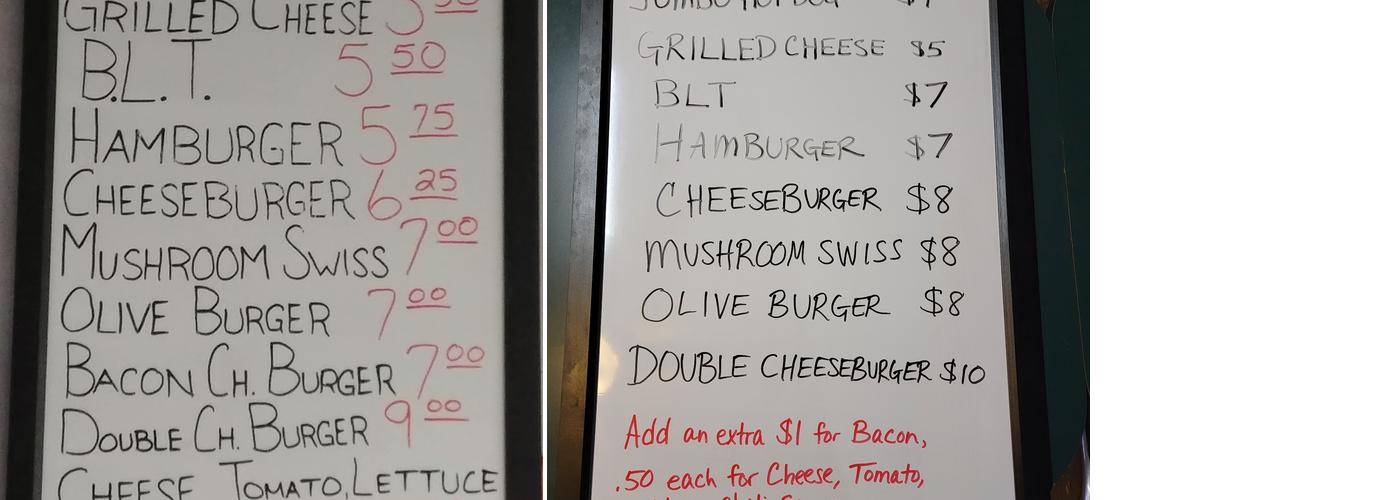 GRILLED CHEESE
B.L.T. 5 50
HAMBURGER 5 75
CHEESEBURGER 6 25
MUSHROOM SWISS 7 00
OLIVE BURGER 7 00
BACON CH. BURGER 7 00
DOUBLE CH. BURGER 9 00
CHEESE TOMATO, LETTUCE
JUMBO HOT DOG
GRILLED CHEESE $5
BLT $7
HAMBURGER $7
CHEESEBURGER $8
MUSHROOM SWISS $8
OLIVE BURGER $8
DOUBLE CHEESEBURGER $10
Add an extra $1 for Bacon,
.50 each for Cheese, Tomato,